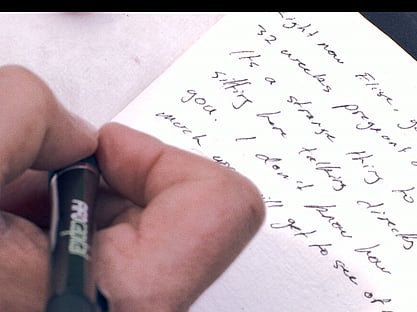 right now Elise,
32 weeks pregnant
It's a strange thing to
sitting here talking directly
you. I don't know how
much will get to see of